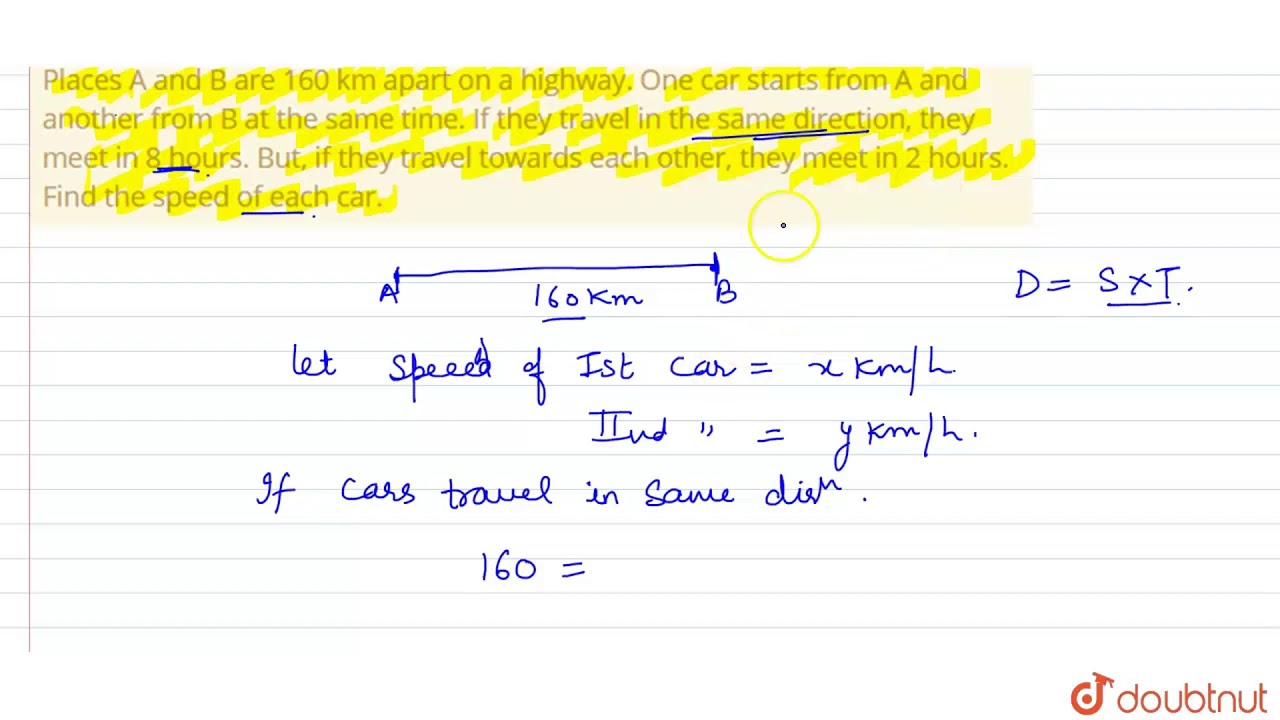 Places A and B are 160 km apart on a highway. One car starts from A and
another from B at the same time. If they travel in the same direction, they
meet in 8 hours. But, if they travel towards each other, they meet in 2 hours.
Find the speed of each car.
A 160 Km B
D = S × T.
let speed of Ist car = x km/h.
IInd " = y km/h.
If cars travel in same disn.
160 =
doubtnut